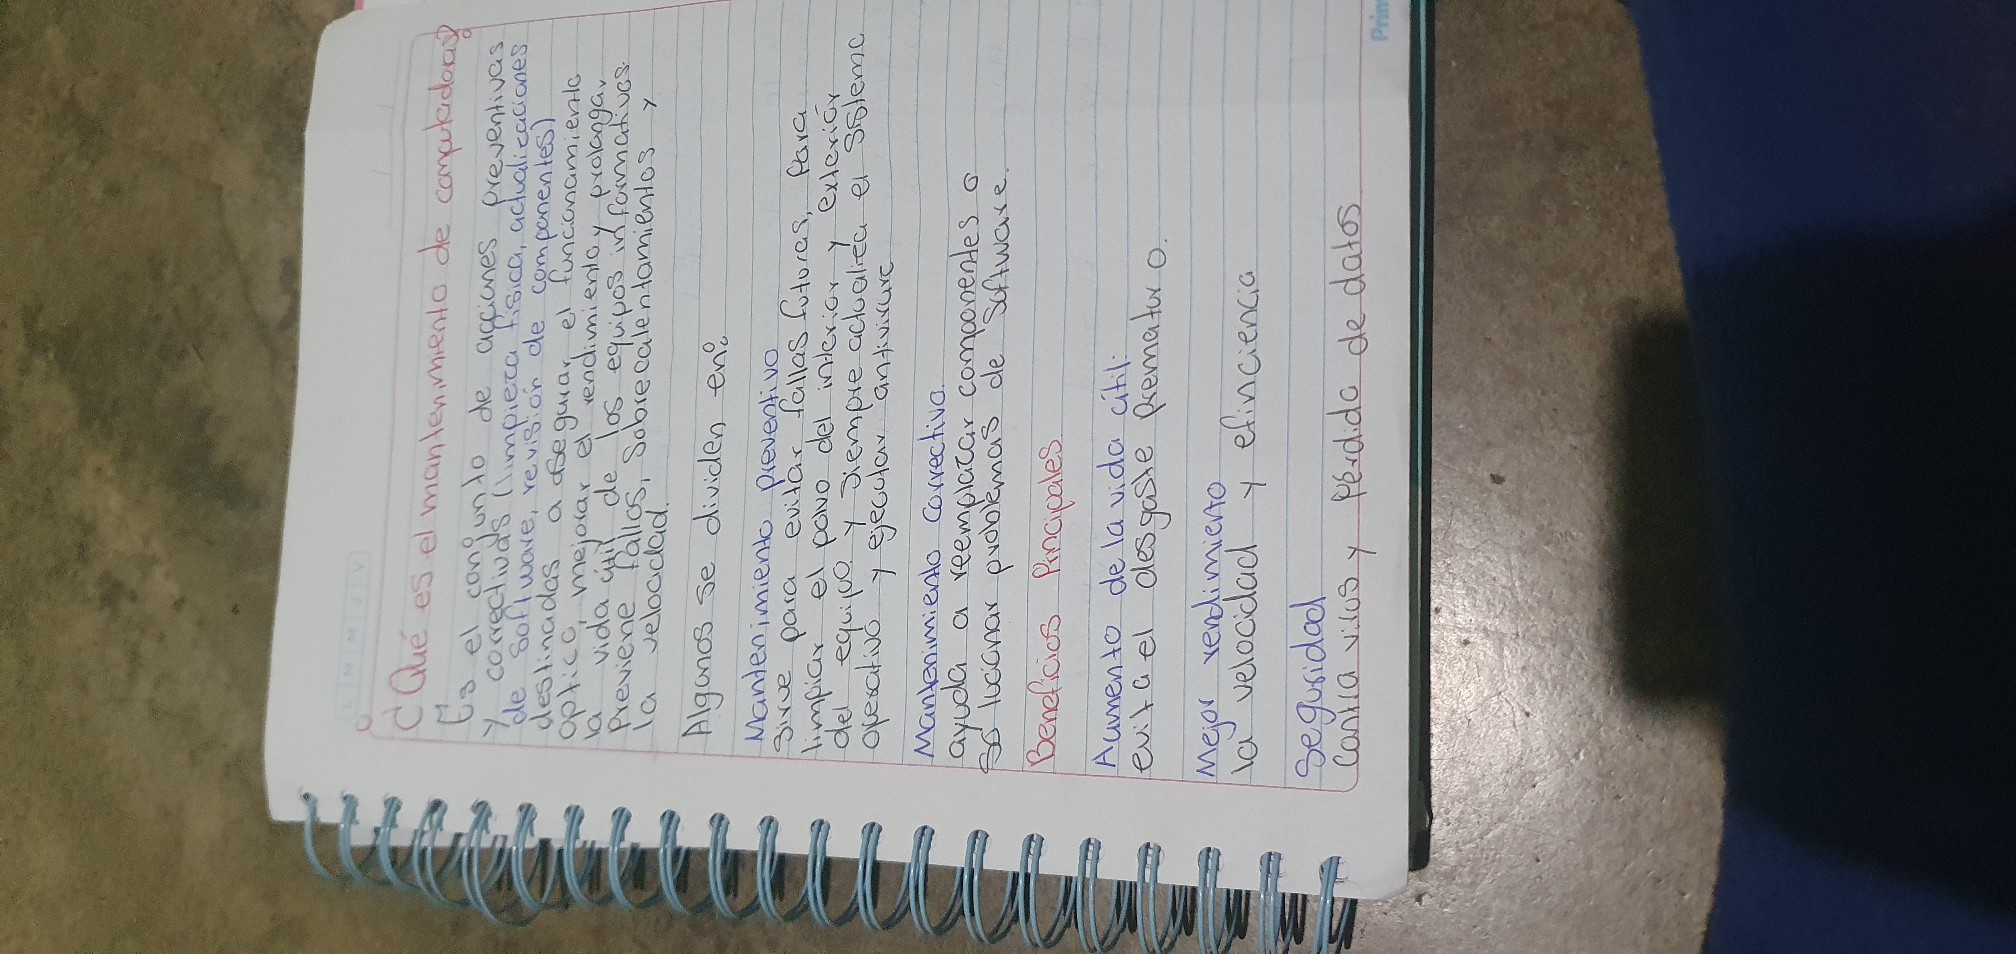 L M M J V
¿Qué es el mantenimento de computadoras?
Es el conjunto de acciones preventivas
y correctivas (limpieza física, actualizaciones
de software, revisión de componentes)
destinadas a asegurar el funcionamiento
optico, mejorar el rendimiento y prolongar
la vida útil de los equipos informativos.
Previene fallos, sobrecalentamientos y
la velocidad.
Algunos se dividen en:
Mantenimiento preventivo
sirve para evitar fallas futuras, para
limpiar el polvo del interior y exterior
del equipo y siempre actualiza el sistema
operativo y ejecutar antivirure
Mantenimiento correctivo.
ayuda a reemplazar componentes o
solucionar problemas de software.
Beneficios Principales
Aumento de la vida útil.
evita el desgaste prematuro.
Mejor rendimiento
la velocidad y efinciencia
Seguridad
Contra virus y pérdida de datos
Prim